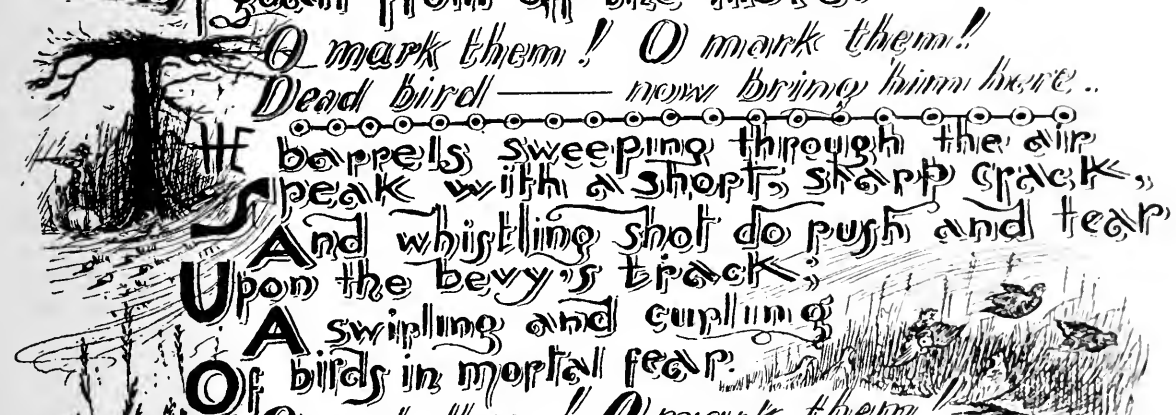 from off the
O mark them! O mark them!
Dead bird —— now bring him here..
THE barrels sweeping through the air
Speak with a short, sharp crack,
And whistling shot do rush and tear
Upon the bevy's track;
A swirling and curling
Of birds in mortal fear.
O mark them! O mark them!